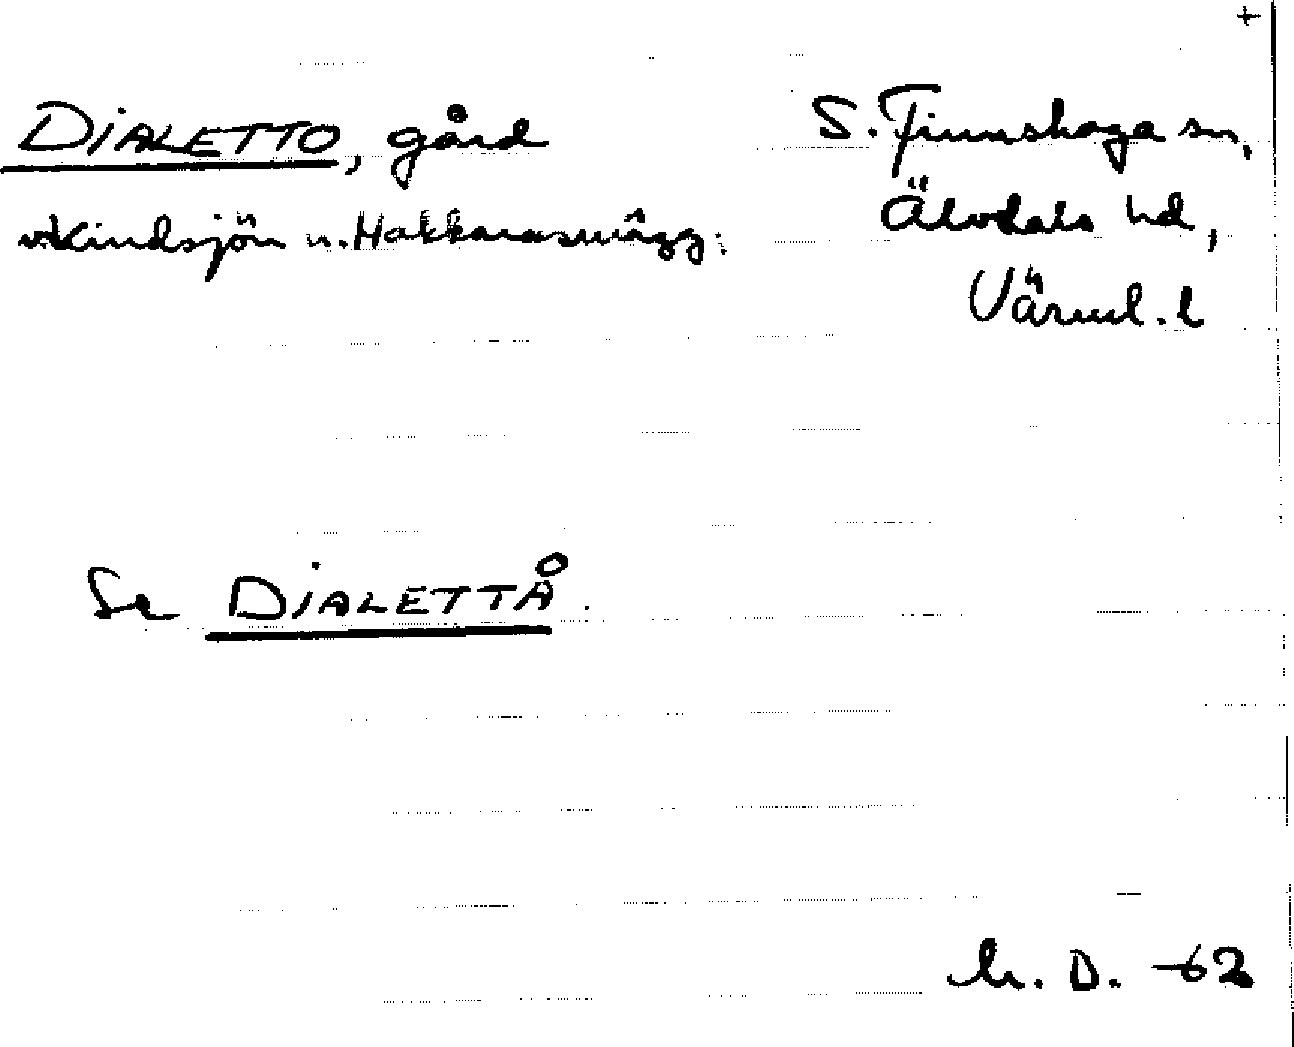 +
DIALETTO, gård
v. Kindsjön n. Hakkarasmägg:
S. Finnskoga sn,
Älvdals hd,
Värml. l
Se DIALETTÅ.
h. D. -62